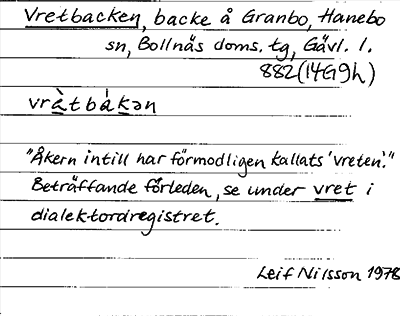 Vretbacken, backe å Granbo, Hanebo
sn, Bollnäs doms. tg, Gävl. l.
882(14G9h)
vràtbákən
"Åkern intill har förmodligen kallats 'vreten'."
Beträffande förleden, se under vret i
dialektordregistret.
Leif Nilsson 1978